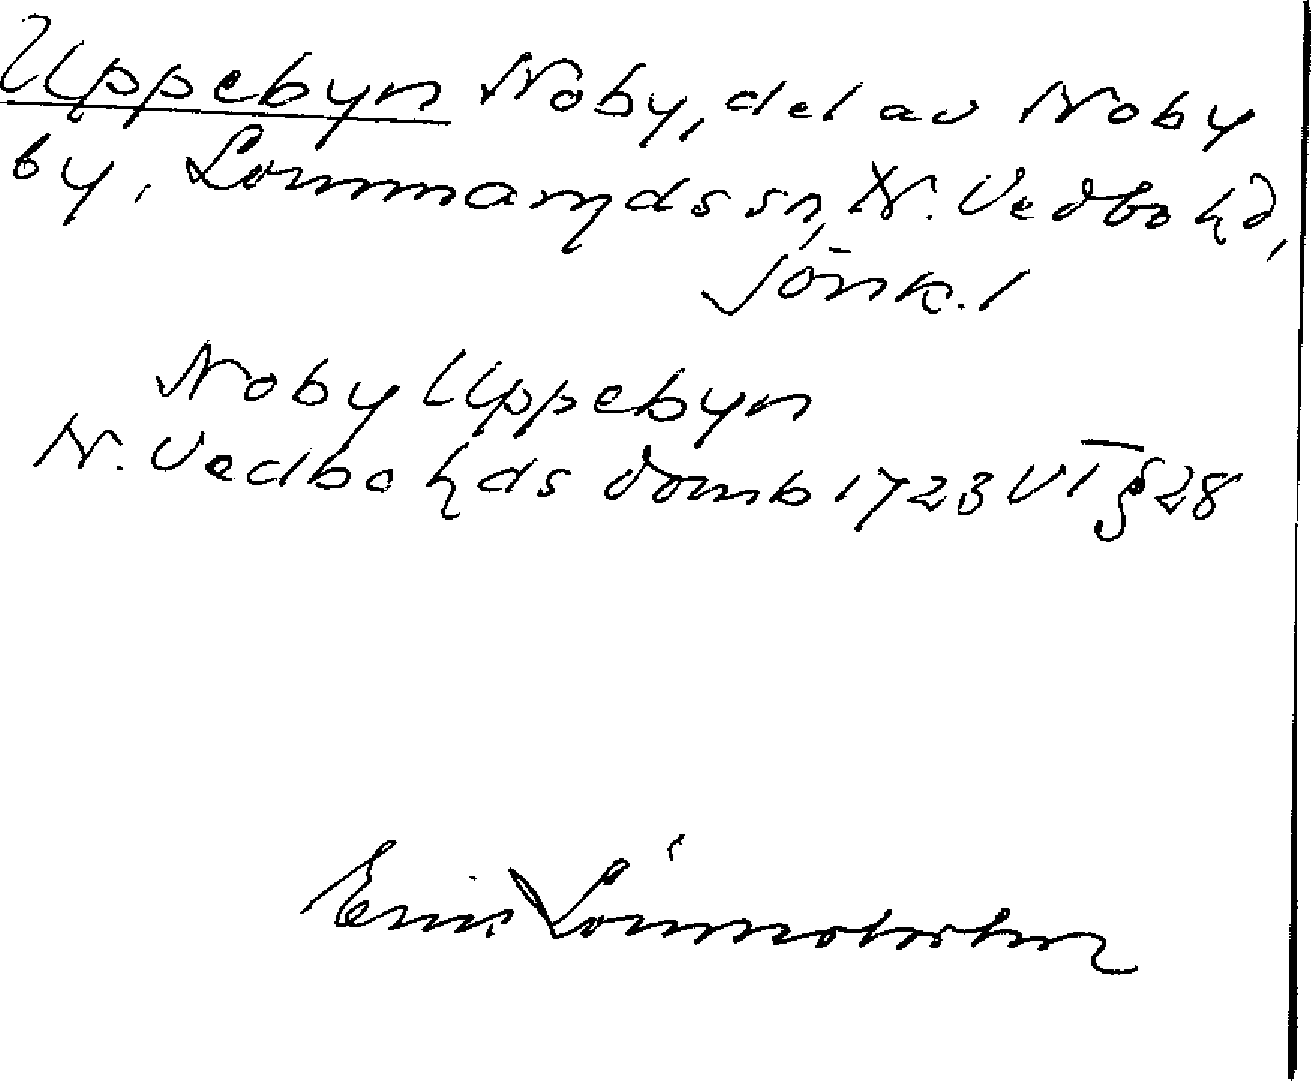 Uppebyn Noby, del av Noby
by, Lommaryds sn, N. Vedbo hd,
Jönk. l
Noby Uppebyn
N. Vedbo hds domb 1723 VI § 28